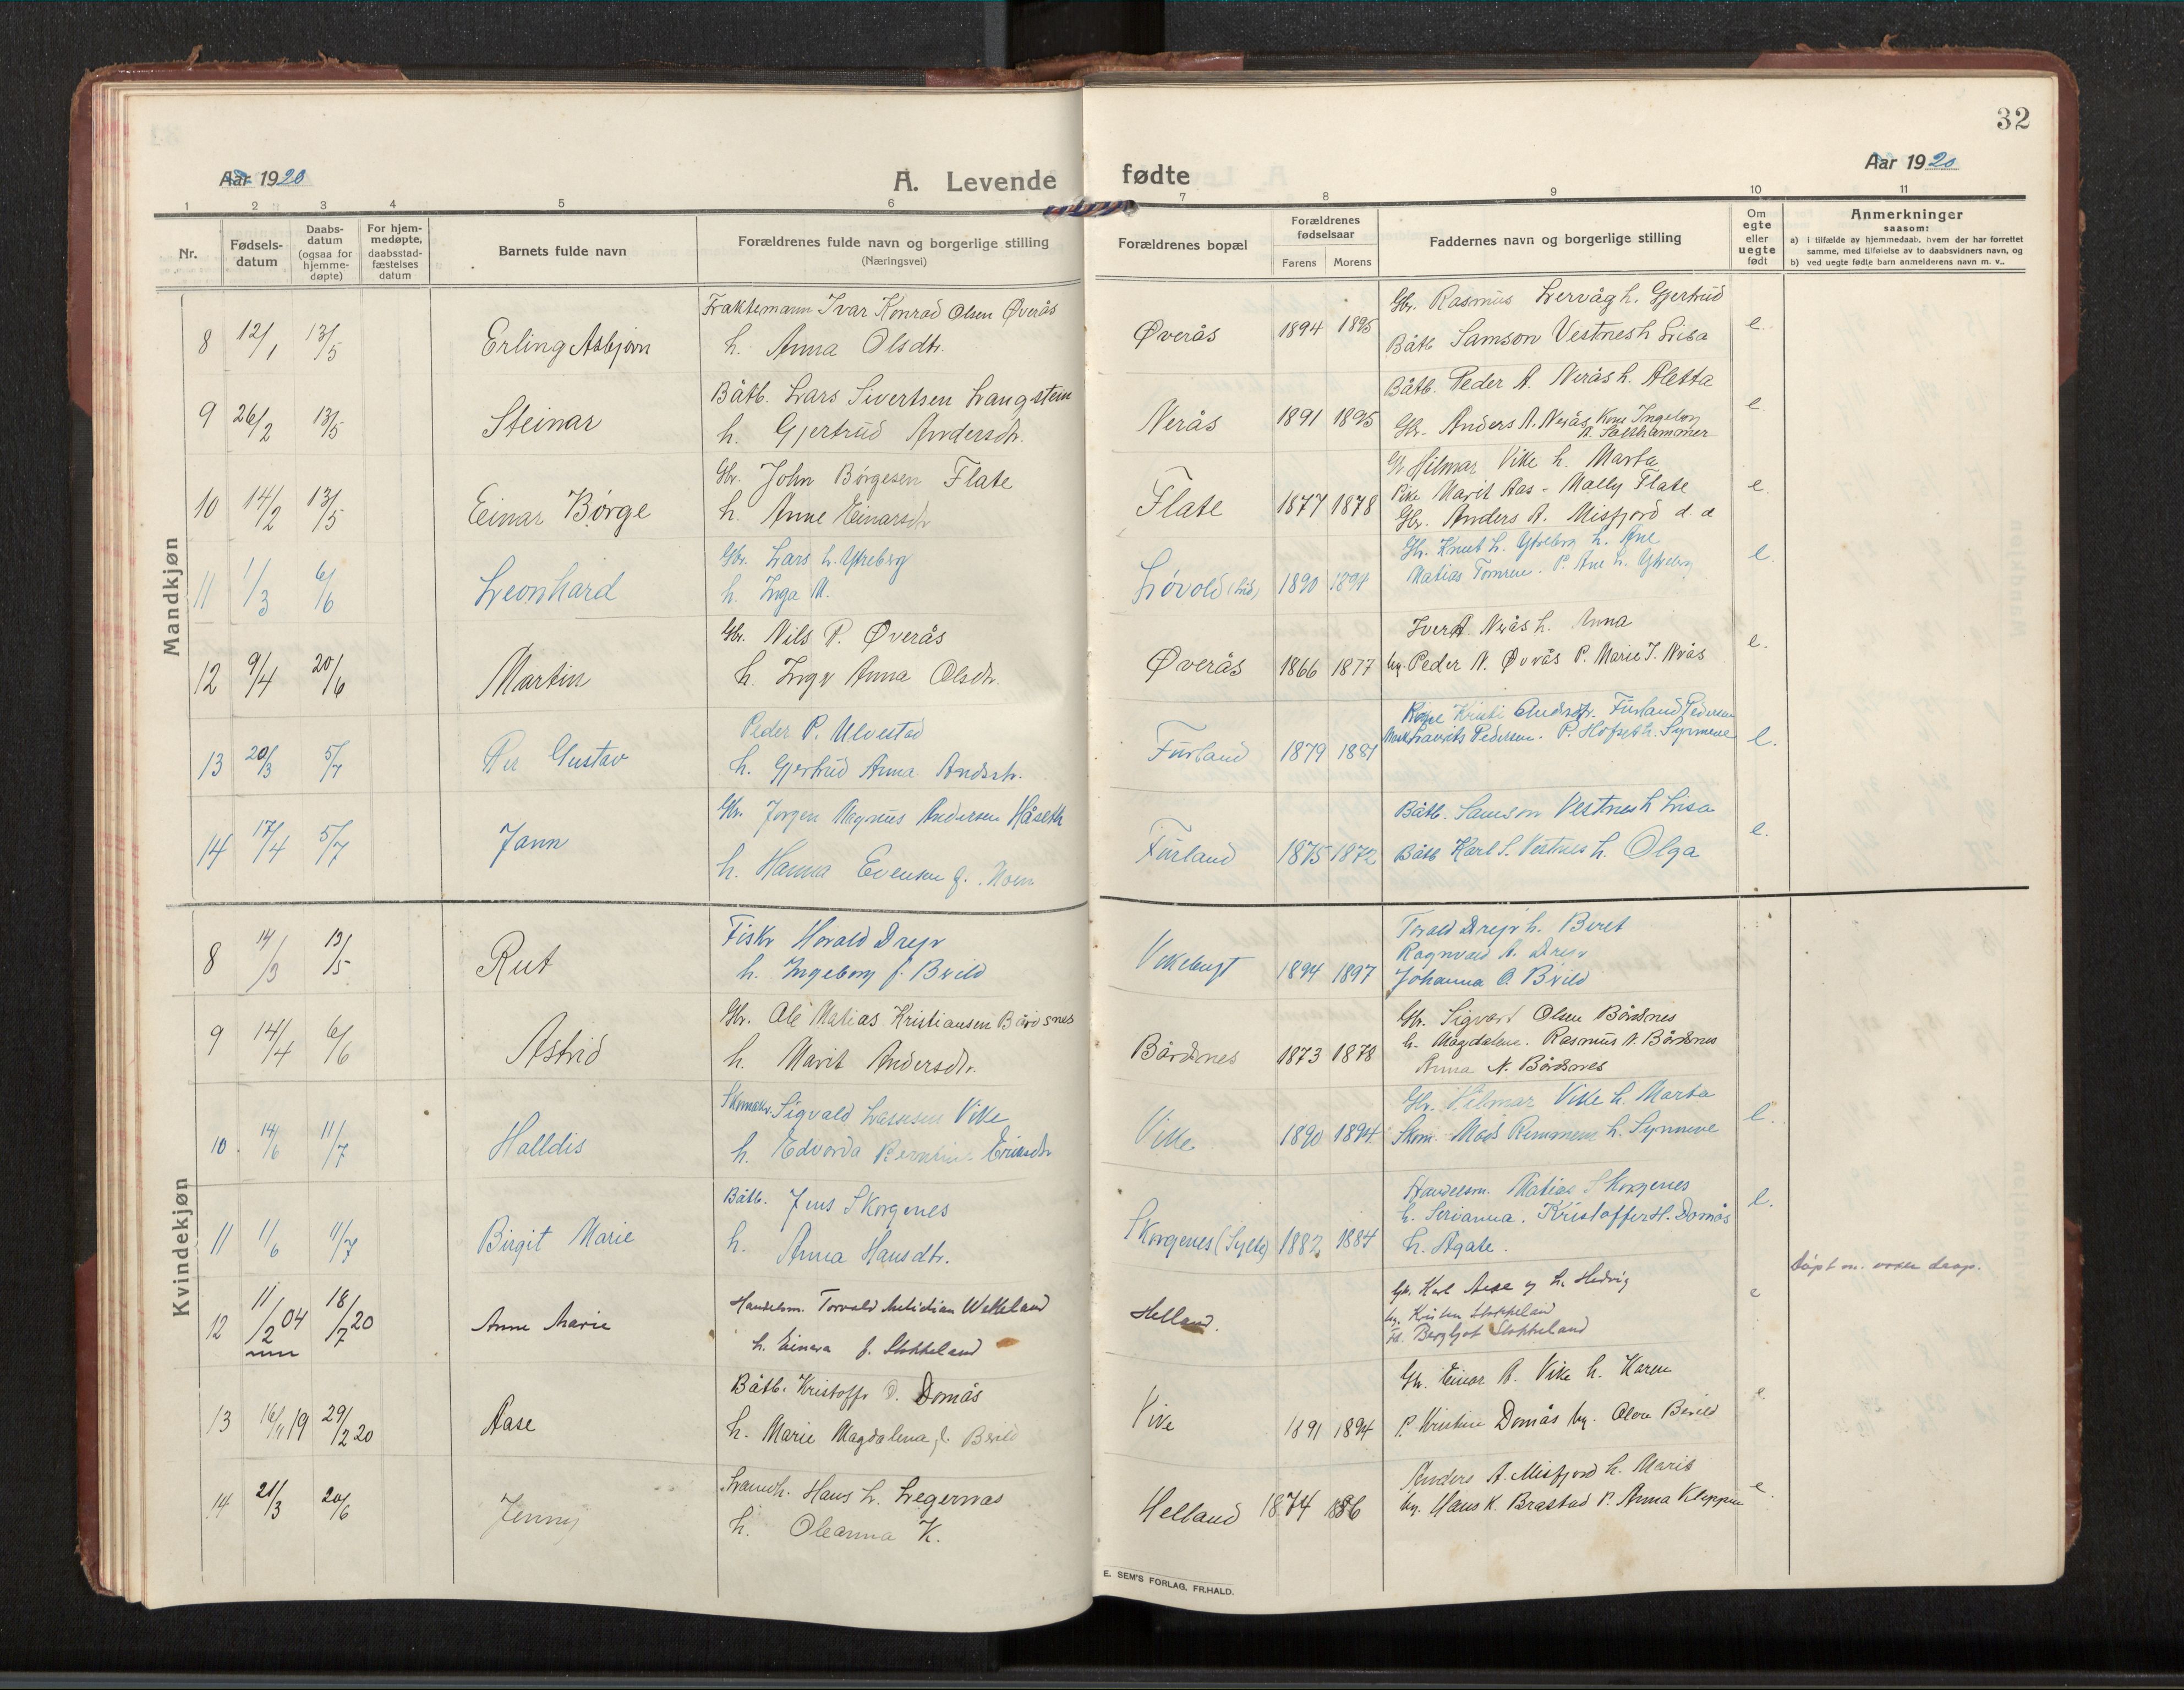 32
Aar 1920
A. Levende fødte
Aar 1920
1 2 3 4 5 6 7 8 9 10 11
Nr.
Fødsels-
datum
Daabs-
datum
(ogsaa for
hjemme-
døpte)
For hjem-
medøpte,
daabsstad-
fæstelses
datum
Barnets fulde navn
Forældrenes fulde navn og borgerlige stilling
(Næringsvei)
Forældrenes bopæl
Forældrenes
fødselsaar
Farens Morens
Faddernes navn og borgerlige stilling
Om
egte
eller
uegte
født
Anmerkninger
saasom:
a) i tilfælde av hjemmedaab, hvem der har forrettet
samme, med tilføielse av to daabsvidners navn, og
b) ved uegte fødte barn anmelderens navn m. v..
Mandkjøn
8 12/1 13/5 Erling Asbjørn
Fraktemann Ivar Konrad Olsen Øverås
h. Anna Olsdtr.
Øverås 1894 1895
Gbr. Rasmus Lervåg h. Gjertrud
Båtb Samson Vestnes h Lisa
e.
9 26/2 13/5 Steinar
Båtb. Lars Sivertsen Langstein
h. Gjertrud Andersdtr.
Nerås 1891 1895
Båtb. Peder A. Nerås h. Aletta
Gbr. Anders A. Nerås, Kone Ingeborg
A. Salthammer
e.
10 14/2 13/5 Einar Børge
Gbr. John Børgesen Flate
h. Anne Einarsdtr
Flate 1877 1878
Gbr Hilmar Vike h. Marta
Pike Marit Aas - Mally Flate
Gbr. Anders A. Misfjord
e.
11 1/3 6/6 Leonhard
Gbr. Lars L. Ytreberg
h. Inga M.
Løvold (Lid) 1890 1894
Gbr. Knut L. Ytreberg h. Ane
Matias Tomren. P. Ane L. Ytreberg
e.
12 9/4 20/6 Martin
Gbr. Nils P. Øverås
h. Inger Anna Olsdtr.
Øverås 1866 1877
Iver A. Nerås h. Anna
Ug. Peder N. Øverås P. Marie I. Nerås
e.
13 20/3 5/7 Per Gustav
Peder P. Ulvestad
h. Gjertrud Anna Andsdtr.
Furland 1879 1881
Kone Kristi Andsdtr. Furland Pedersen
Lavits Pedersen. P. Hofseth. Synneve
e.
14 17/4 5/7 Jann
Gbr. Jørgen Magnus Andersen Håseth
h. Hanna Evensen f. Moen
Furland 1875 1872
Båtb. Samson Vestnes h Lisa
Båtb Karl S. Vestnes h. Olga
e.
Kvindekjøn
8 14/3 13/5 Rut
Fisker Harald Dreyer
h. Ingeborg f. Bveld
Vikebugt 1894 1897
Torald Dreyer h. Beret
Ragnvald A. Dreyer
Johanna O. Bveld
9 14/4 6/6 Astrid
Gbr. Ole Matias Kristiansen Bårdsnes
h. Marit Andersdtr.
Bårdsnes 1873 1878
Gbr. Sigvart Olsen Bårdsnes
h. Magdalene. Rasmus N. Bårdsnes
Anna N. Bårdsnes
10. 14/6 11/7 Halldis
Skomaker. Sigvald Lassesen Vike
h. Edvarda Eriksdtr
Vike 1890 1894
Gbr. Hilmar Vike h. Marta
Skom. Mads Remmem h. Synneve
e.
11 1/6 11/7 Birgit Marie
Båtb. Jens Skorgenes
h. Anna Hansdtr.
Skorgenes (Sylte) 1882 1884
Handelsm. Matias Skorgenes
h. Serianna. Kristoffer H. Domås
h. Agate.
e.
12 11/2 04 18/7 20 Anne Marie
Handelsm. Torvald Wekeland
h. Einara f. Stokkeland
Helland.
Gbr. Karl Aese og h. Hedvig
Ug. Stokkeland
Bergljot Stokkeland
e
døpt m. voxen daap.
13 16/11 19 29/2 20 Aase
Båtb. Kristoffer O. Domås
h. Marie Magdalena f. Bveld
Vike 1891 1894
Gbr. Einar A. Vike h. Karen
P. Kristine Domås Ug. Bveld
e.
14 21/3 20/6 Jenny
Hans L. Legernes
h. Oleanna K.
Helland 1874 1886
Anders A. Misfjord h. Marit
Ug. Hans K. Brastad P. Anna Kleppen
e.
E. SEM'S FORLAG, FR.HALD.